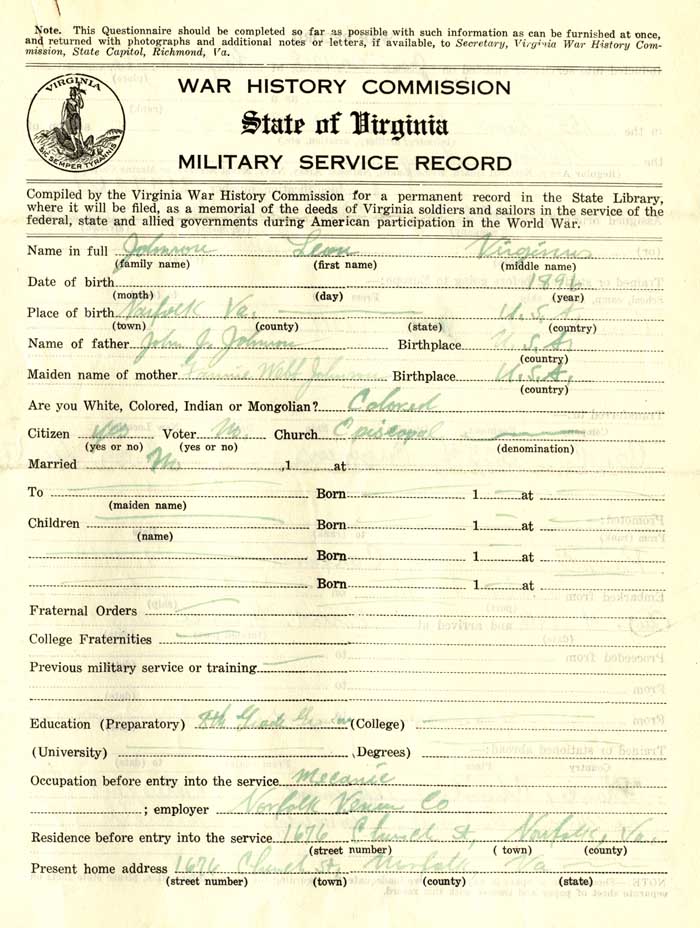 Note. This Questionnaire should be completed so far as possible with such information as can be furnished at once,
and returned with photographs and additional notes or letters, if available, to Secretary, Virginia War History Com-
mission, State Capitol, Richmond, Va.
VIRGINIA
SIC SEMPER TYRANNIS
WAR HISTORY COMMISSION
State of Virginia
MILITARY SERVICE RECORD
Compiled by the Virginia War History Commission for a permanent record in the State Library,
where it will be filed, as a memorial of the deeds of Virginia soldiers and sailors in the service of the
federal, state and allied governments during American participation in the World War.
Name in full Johnson Leon Virginius
(family name) (first name) (middle name)
Date of birth 1896
(month) (day) (year)
Place of birth Norfolk Va. U.S.A
(town) (county) (state) (country)
Name of father John J. Johnson Birthplace U.S.A.
(country)
Maiden name of mother Fannie Webb Johnson Birthplace U.S.A.
(country)
Are you White, Colored, Indian or Mongolian? Colored
Citizen yes Voter No. Church Episcopal
(yes or no) (yes or no) (denomination)
Married ,1 at
To Born 1 at
(maiden name)
Children Born 1 at
(name)
Born 1 at
Born 1 at
Fraternal Orders
College Fraternities
Previous military service or training
Education (Preparatory) 8th Grade (College)
(University) (Degrees)
Occupation before entry into the service Mecanic
; employer Norfolk Co
Residence before entry into the service 1676 Church St, Norfolk, Va.
(street number) (town) (county)
Present home address 1676 Church St, Norfolk Va
(street number) (town) (county) (state)